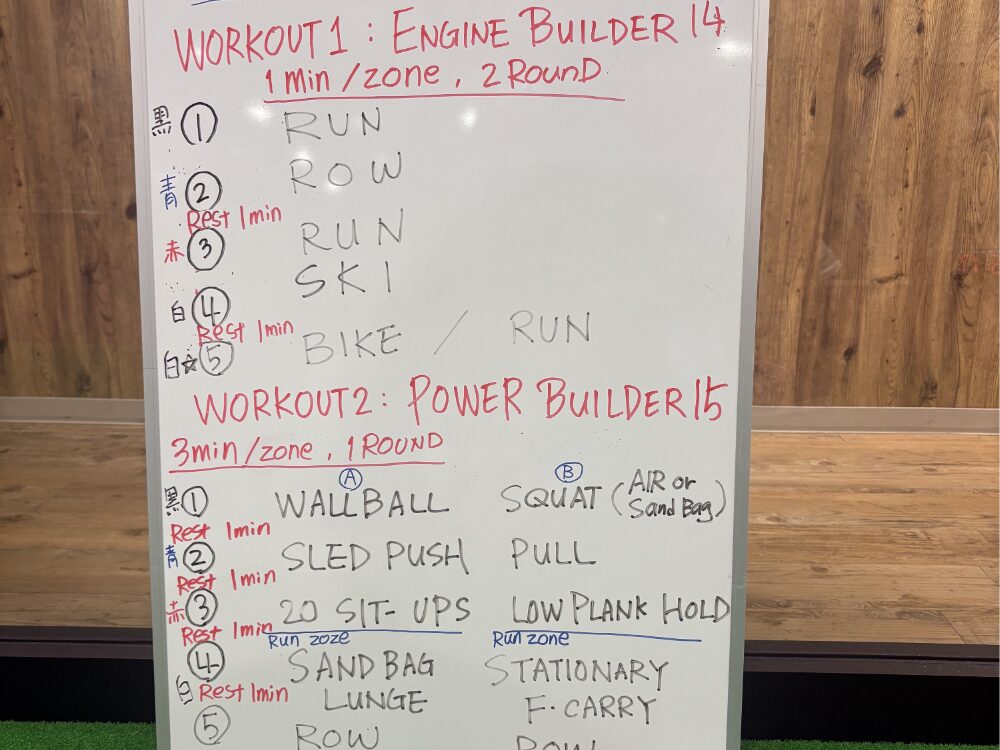 WORKOUT1 : ENGINE BUILDER 14
1 Min /zone , 2 RounD
黒 ① RUN
青 ② ROW
Rest 1min
赤 ③ RUN
白 ④ SKI
Rest 1min
白☆⑤ BIKE / RUN
WORKOUT2 : POWER BUILDER 15
3min/zone , 1 ROUND
Ⓐ Ⓑ
黒 ① WALL BALL SQUAT (AIR or Sand Bag)
Rest 1min
青 ② SLED PUSH PULL
Rest 1min
赤 ③ 20 SIT-UPS LOW PLANK HOLD
Rest 1min Run zoze Run zone
白 ④ SAND BAG STATIONARY
Rest 1min LUNGE F. CARRY
⑤ ROW ROW